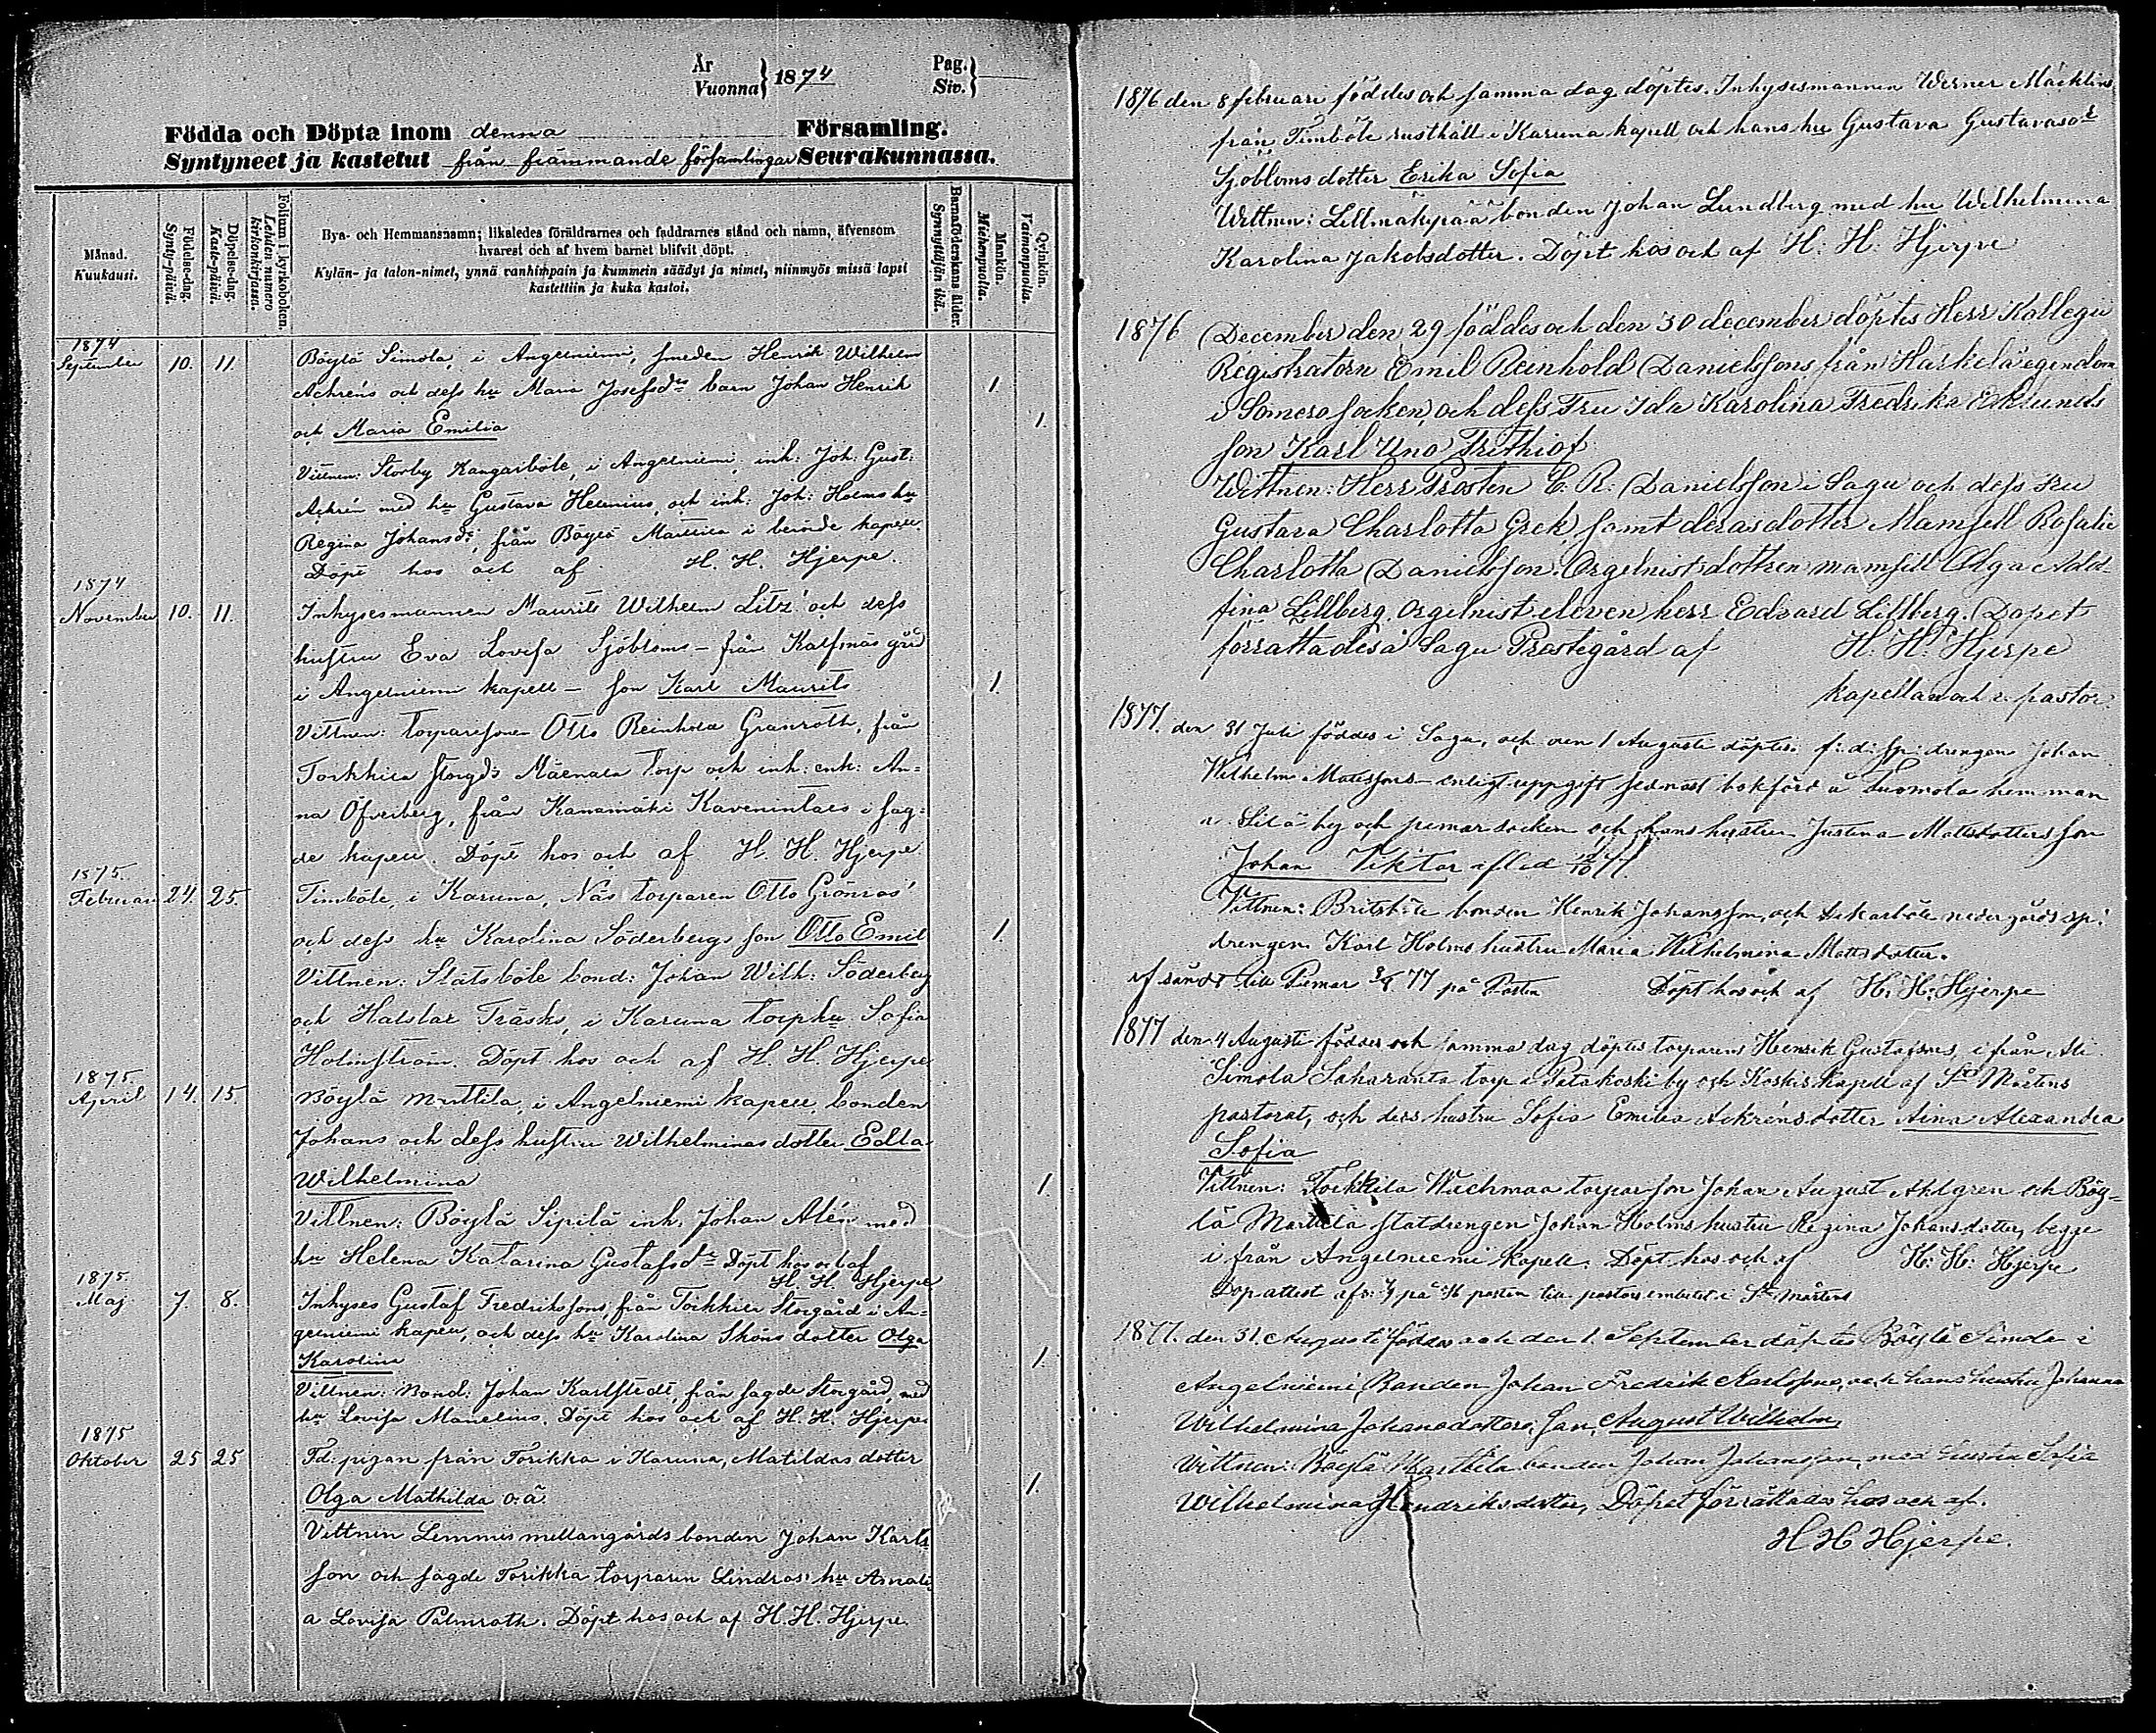 År
Vuonna } 1874
Pag.
Siv. }
Födda och Döpta inom denna Församling.
Syntyneet ja kastetut från främmande församlingar Seurakunnassa.
Månad.
Kuukausi.
Födelse-dag.
Synty-päivä.
Döpelse-dag.
Kaste-päivä.
Folium i kyrkoboken.
Lehden numero kirkonkirjassa.
Bya- och Hemmansnamn; likaledes föräldrarnes och faddrarnes stånd och namn, äfvensom
hvarest och af hvem barnet blifvit döpt.
Kylän- ja talon-nimet, ynnä vanhimpain ja kummein säädyt ja nimet, niinmyös missä lapsi
kastettiin ja kuka kastoi.
Barnaföderskans ålder.
Synnyttäjän ikä.
Mankön.
Miehenpuolia.
Qvinkön.
Vaimonpuolia.
1874
September 10. 11. Böylä Simola, i Angelniemi, smeden Henrik Wilhelm
Achréns och dess hu Maria Josefsdrs barn Johan Henrik 1.
och Maria Emilia 1.
Vittnen: Storby Kangarböle, i Angelniemi, inh: Joh: Gust:
Achrén med hu Gustava Helenius, och inh. Joh: Holms hu
Regina Johansdr, från Böylä Marttila i berörde kapell.
Döpt hos och af H. H. Hjerpe.
1874
November 10. 11. Inhysesmannen Maurits Wilhelm Litz' och dess
hustru Eva Lovisa Sjöbloms - från Kalfsnäs gård
i Angelniemi kapell - son Karl Maurits 1.
Vittnen: torparesonen Otto Reinhold Granroth, från
Toikkila storgds Mäenala torp och inh: enk: An=
na Öfverberg, från Kanamäki Kavenintalo i sag=
de kapell. Döpt hos och af H. H. Hjerpe.
1875.
Februari 24. 25. Timböle, i Karuna, Näs torparen Otto Grönros'
och dess hu Karolina Söderbergs son Otto Emil 1.
Vittnen: Slätsböle bond: Johan Wilh: Söderberg
och Halslar Träsks, i Karuna torp hu Sofia
Holmström. Döpt hos och af H. H. Hjerpe
1875.
April 14. 15. Böylä Muttila, i Angelniemi kapell, bonden
Johans och dess hustru Wilhelminas dotter Edla
Wilhelmina 1.
Vittnen: Böylä Sipilä inh. Johan Alén med
hu Helena Katarina Gustafsdr Döpt hos och af
H. H. Hjerpe
1875.
Maj 7. 8. Inhyses Gustaf Fredrikssons, från Toikkila Storgård i An=
gelniemi kapell, och dess hu Karolina Sköns dotter Olga
Karolina 1.
Vittnen: Bond: Johan Karlstedt, från sagde Storgård, med
hu Lovisa Manelius. Döpt hos och af H. H. Hjerpe
1875
Oktober 25 25 Fd: pigan från Torikka i Karuna, Matildas dotter
Olga Mathilda o. ä. 1.
Vittnen Lemmis mellangårds bonden Johan Karls
son och sagde Torikka torparen Lindros' hu Amali
a Lovisa Palmroth. Döpt hos och af H. H. Hjerpe.
1876 den 8 februari föddes och samma dag döptes. Inhysesmannen Werner Mäcklins
från Timböle rusthåll i Karuna kapell och hans hu Gustava Gustavasdr
Sjöbloms dotter Erika Sofia
Wittnen: Lillmälypää bonden Johan Lundberg med hu Wilhelmina
Karolina Jakobsdotter. Döpt hos och af H: H: Hjerpe
1876 December den 29 föddes och den 30 december döptes Herr Kollegii
Registratorn Emil Reinhold Danielssons från Härkälä egendom
i Somero socken, och dess Fru Ida Karolina Fredrika Eklunds
son Karl Uno Frithiof
Wittnen: Herr Prosten C. R. Danielsson i Sagu och dess Fru
Gustava Charlotta Grek samt deras dotter Mamsell Rosalie
Charlotta Danielsson. Orgelnistdottren mamsell Olga Adol-
fina Lillberg. Orgelnist eleven herr Edvard Lillberg. Dopet
förrättades å Sagu Prestegård af H. H. Hjerpe
kapellan och v. pastor.
1877. den 31 Juli föddes i Sagu, och den 1 Augusti döptes. f: d: sp: drengen Johan
Wilhelm Matssons - enligt uppgift sednast bokförd å Tuomola hemman
Silä by och pemar socken och hans hustru Justina Mattsdotters son
Johan Viktor
Vittnen: Britsböle bonden Henrik Johansson, och nedergårds sp:
drengen Karl Holms hustru Maria Wilhelmina Mattsdotter.
af sändt till Piemar 77 på Posten Döpt hos och af H: H: Hjerpe
1877 den 4 Augusti föddes och samma dag döptes torparens Henrik Gustafsons, i från Ali
Simola Saharanta torp i Patakoski by och Koskis kapell af St Mårtens
pastorat, och dess hustru Sofia Emilia Achréns dotter Aina Alexandra
Sofia
Vittnen: Toikkila Wuohmaa torpar son Johan August Ahlgren och Böy=
lä Marttila statdrengen Johan Holms hustru Regina Johansdotter, begge
i från Angelniemi kapell. Döpt hos och af H: H: Hjerpe
Dop attest på posten till pastors embetet i St mårtens
1877. den 31. Augusti föddes och den 1. September döptes Böylä Simola i
Angelniemi, Bonden Johan Fredrik Karlssons, och hans hustru Johanna
Wilhelmina Johansdotters, Son, August Wilhelm,
Wittnen: Böylä Marttila bonden Johan Johansson, med hustru Sofia
Wilhelmina Hendriksdotter, Döpet förrättades hos och af.
H H Hjerpe.